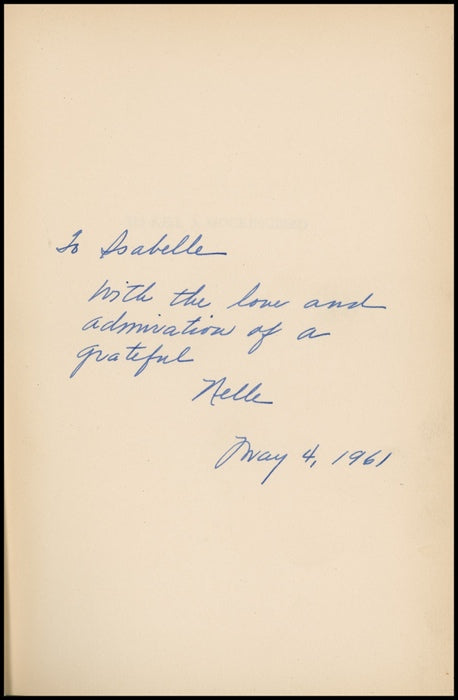 To Isabelle
With the love and
admiration of a
grateful
Nelle
May 4, 1961